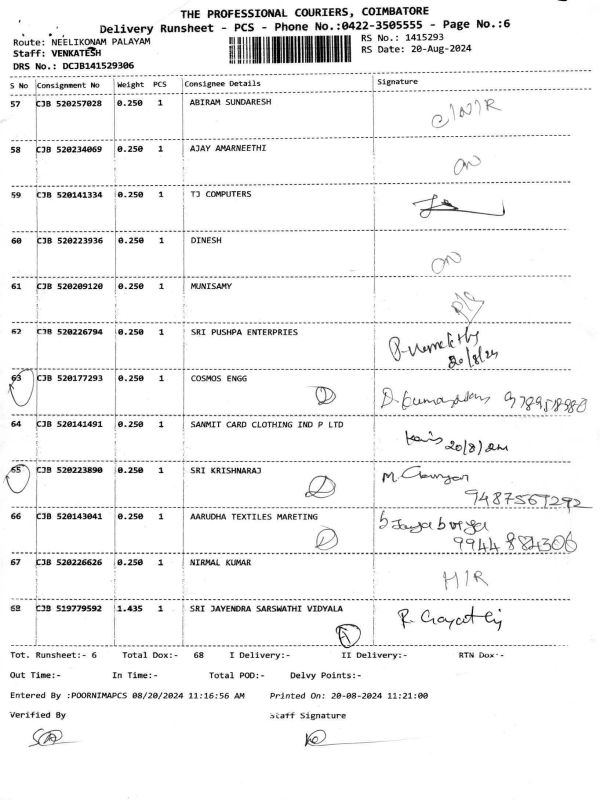 THE PROFESSIONAL COURIERS, COIMBATORE
Delivery Runsheet - PCS - Phone No.:0422-3505555 - Page No.:6
Route: NEELIKONAM PALAYAM RS No.: 1415293
Staff: VENKATESH RS Date: 20-Aug-2024
DRS No.: DCJB141529306
S No Consignment No Weight PCS Consignee Details Signature
57 CJB 520257028 0.250 1 ABIRAM SUNDARESH
58 CJB 520234069 0.250 1 AJAY AMARNEETHI
59 CJB 520141334 0.250 1 TJ COMPUTERS
60 CJB 520223936 0.250 1 DINESH
61 CJB 520209120 0.250 1 MUNISAMY
62 CJB 520226794 0.250 1 SRI PUSHPA ENTERPRIES
20/8/24
63 CJB 520177293 0.250 1 COSMOS ENGG
64 CJB 520141491 0.250 1 SANMIT CARD CLOTHING IND P LTD
65 CJB 520223890 0.250 1 SRI KRISHNARAJ
9487567292
66 CJB 520143041 0.250 1 AARUDHA TEXTILES MARETING
9944 884306
67 CJB 520226626 0.250 1 NIRMAL KUMAR
68 CJB 519779592 1.435 1 SRI JAYENDRA SARSWATHI VIDYALA R. Gayathri
Tot. Runsheet:- 6 Total Dox:- 68 I Delivery:- II Delivery:- RTN Dox:-
Out Time:- In Time:- Total POD:- Delvy Points:-
Entered By :POORNIMAPCS 08/20/2024 11:16:56 AM Printed On: 20-08-2024 11:21:00
Verified By Staff Signature